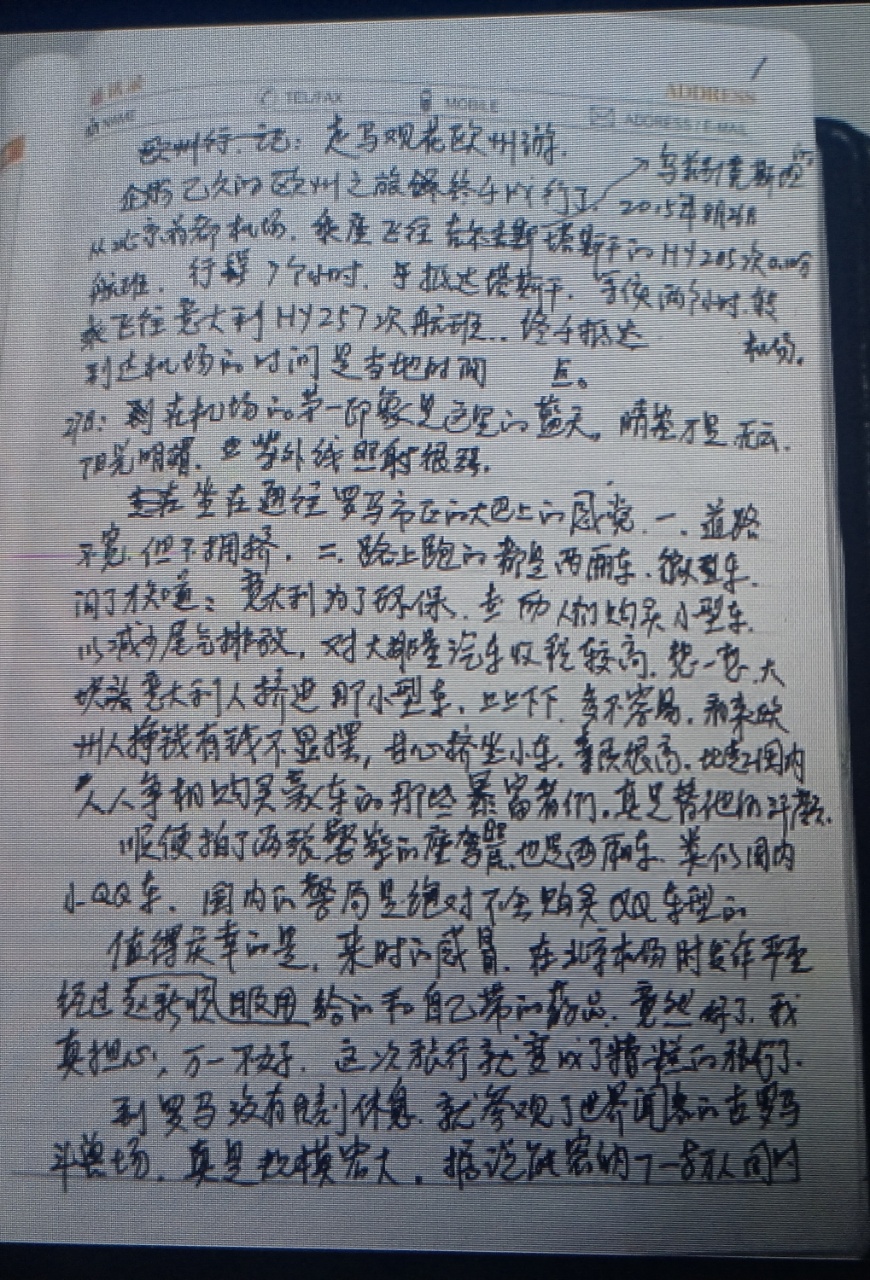 1
通讯录
NAME
TEL/FAX
MOBILE
ADDRESS
ADDRESS / E-MAIL
欧州行记：走马观花欧州游.
企盼已久的欧州之旅终于成行了. 乌兹别克斯坦
2015年8月26日
从北京首都机场，乘座飞往塔斯干的HY
航班．行程7个小时．于抵达塔斯干．等候两个小时.转
乘飞往意大利HY257次航班．终于抵达 机场.
到达机场的时间是当地时间 点。
27日：到在机场的第一印象是这里的蓝天。晴空才是无云.
阳光明媚．紫外线照射很强.
坐在通往罗马市区的大巴上的感觉．一．道路
不宽.但不拥挤．二．路上跑的都是两厢车．微型车.
问了才知道：意大利为了环保．鼓励人们购买小型车.
以减少尾气排放，对大排量汽车收税较高．想一想．大
块头意大利人挤进那小型车．上上下下．多不容易．看来欧
州人挣钱有钱不显摆，甘心挤坐小车．素质很高．比起国内
人人争相购买豪车的那些暴富者们．真是替他们汗颜.
顺便拍了两张警察的座驾.也是两厢车．类似国内
小QQ车．国内的警局是绝对不会购买QQ车型的
值得庆幸的是．来时的感冒．在北京机场时发作严重
经过赵新服用给的和自己带的药品．竟然好了．我
真担心，万一不好．这次旅行就变成了糟糕的旅行了.
到罗马没有片刻休息．就参观了世界闻名的古罗马
斗兽场．真是规模宏大．据说能容纳7—8万人同时